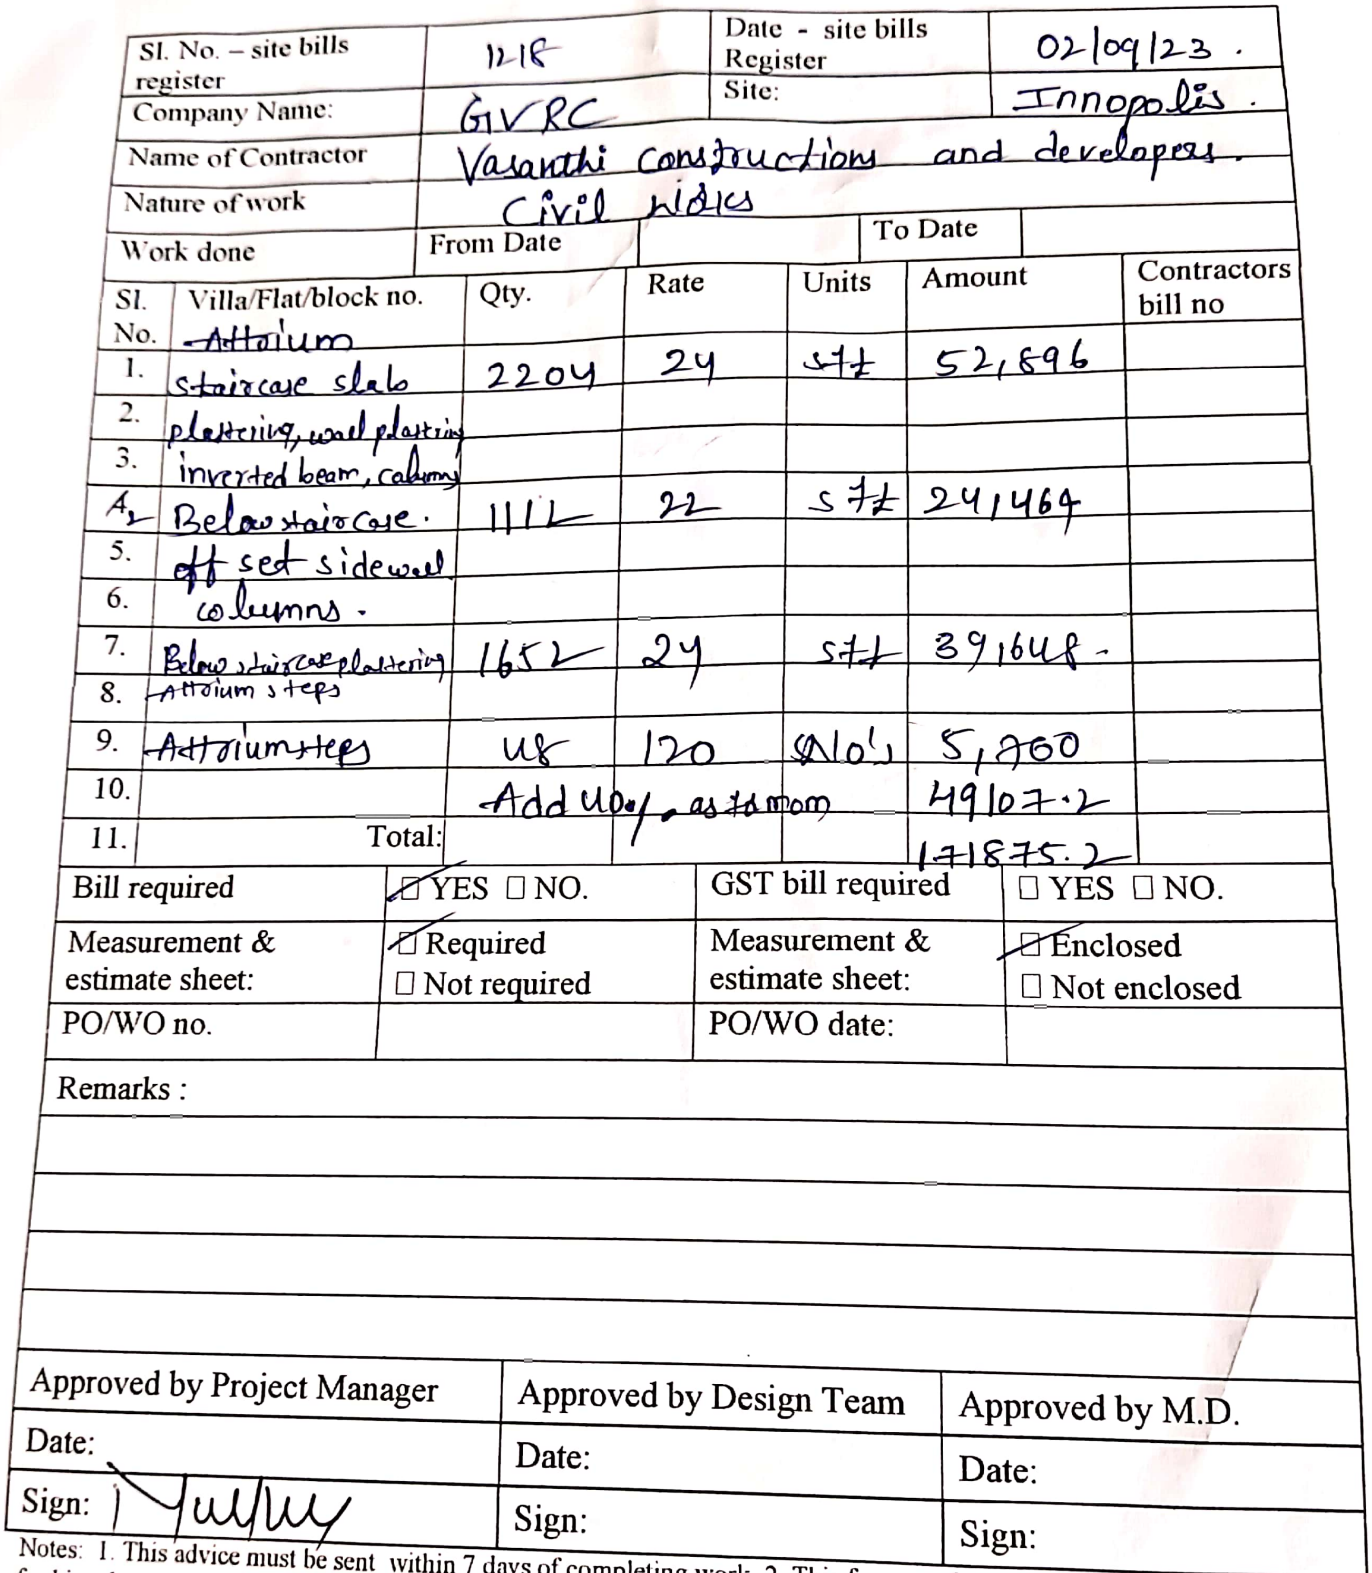 Sl. No. – site bills register 1218 Date - site bills Register 02/09/23.
Company Name: GVRC Site: Innopolis.
Name of Contractor Vasanthi Constructions and developers.
Nature of work Civil works
Work done From Date To Date
Sl. No. Villa/Flat/block no. Qty. Rate Units Amount Contractors bill no
Attrium
1. staircase slab 2204 24 sft 52,896
2. plastering, wall plastring
3. inverted beam, columns
4. Below staircase. 1112 22 sft 24,464
5. off set sidewall
6. columns.
7. Below staircase plastering 1652 24 sft 39,648.
8. Attrium steps
9. Attrium steps 48 120 No's 5,760
10. Add 40%. as to mom 49107.2
11. Total: 171875.2
Bill required ☑ YES □ NO. GST bill required □ YES □ NO.
Measurement & estimate sheet: ☑ Required □ Not required Measurement & estimate sheet: ☑ Enclosed □ Not enclosed
PO/WO no. PO/WO date:
Remarks :
Approved by Project Manager Approved by Design Team Approved by M.D.
Date: Date: Date:
Sign: Sign: Sign:
Notes: 1. This advice must be sent within 7 days of completing work. 2. This